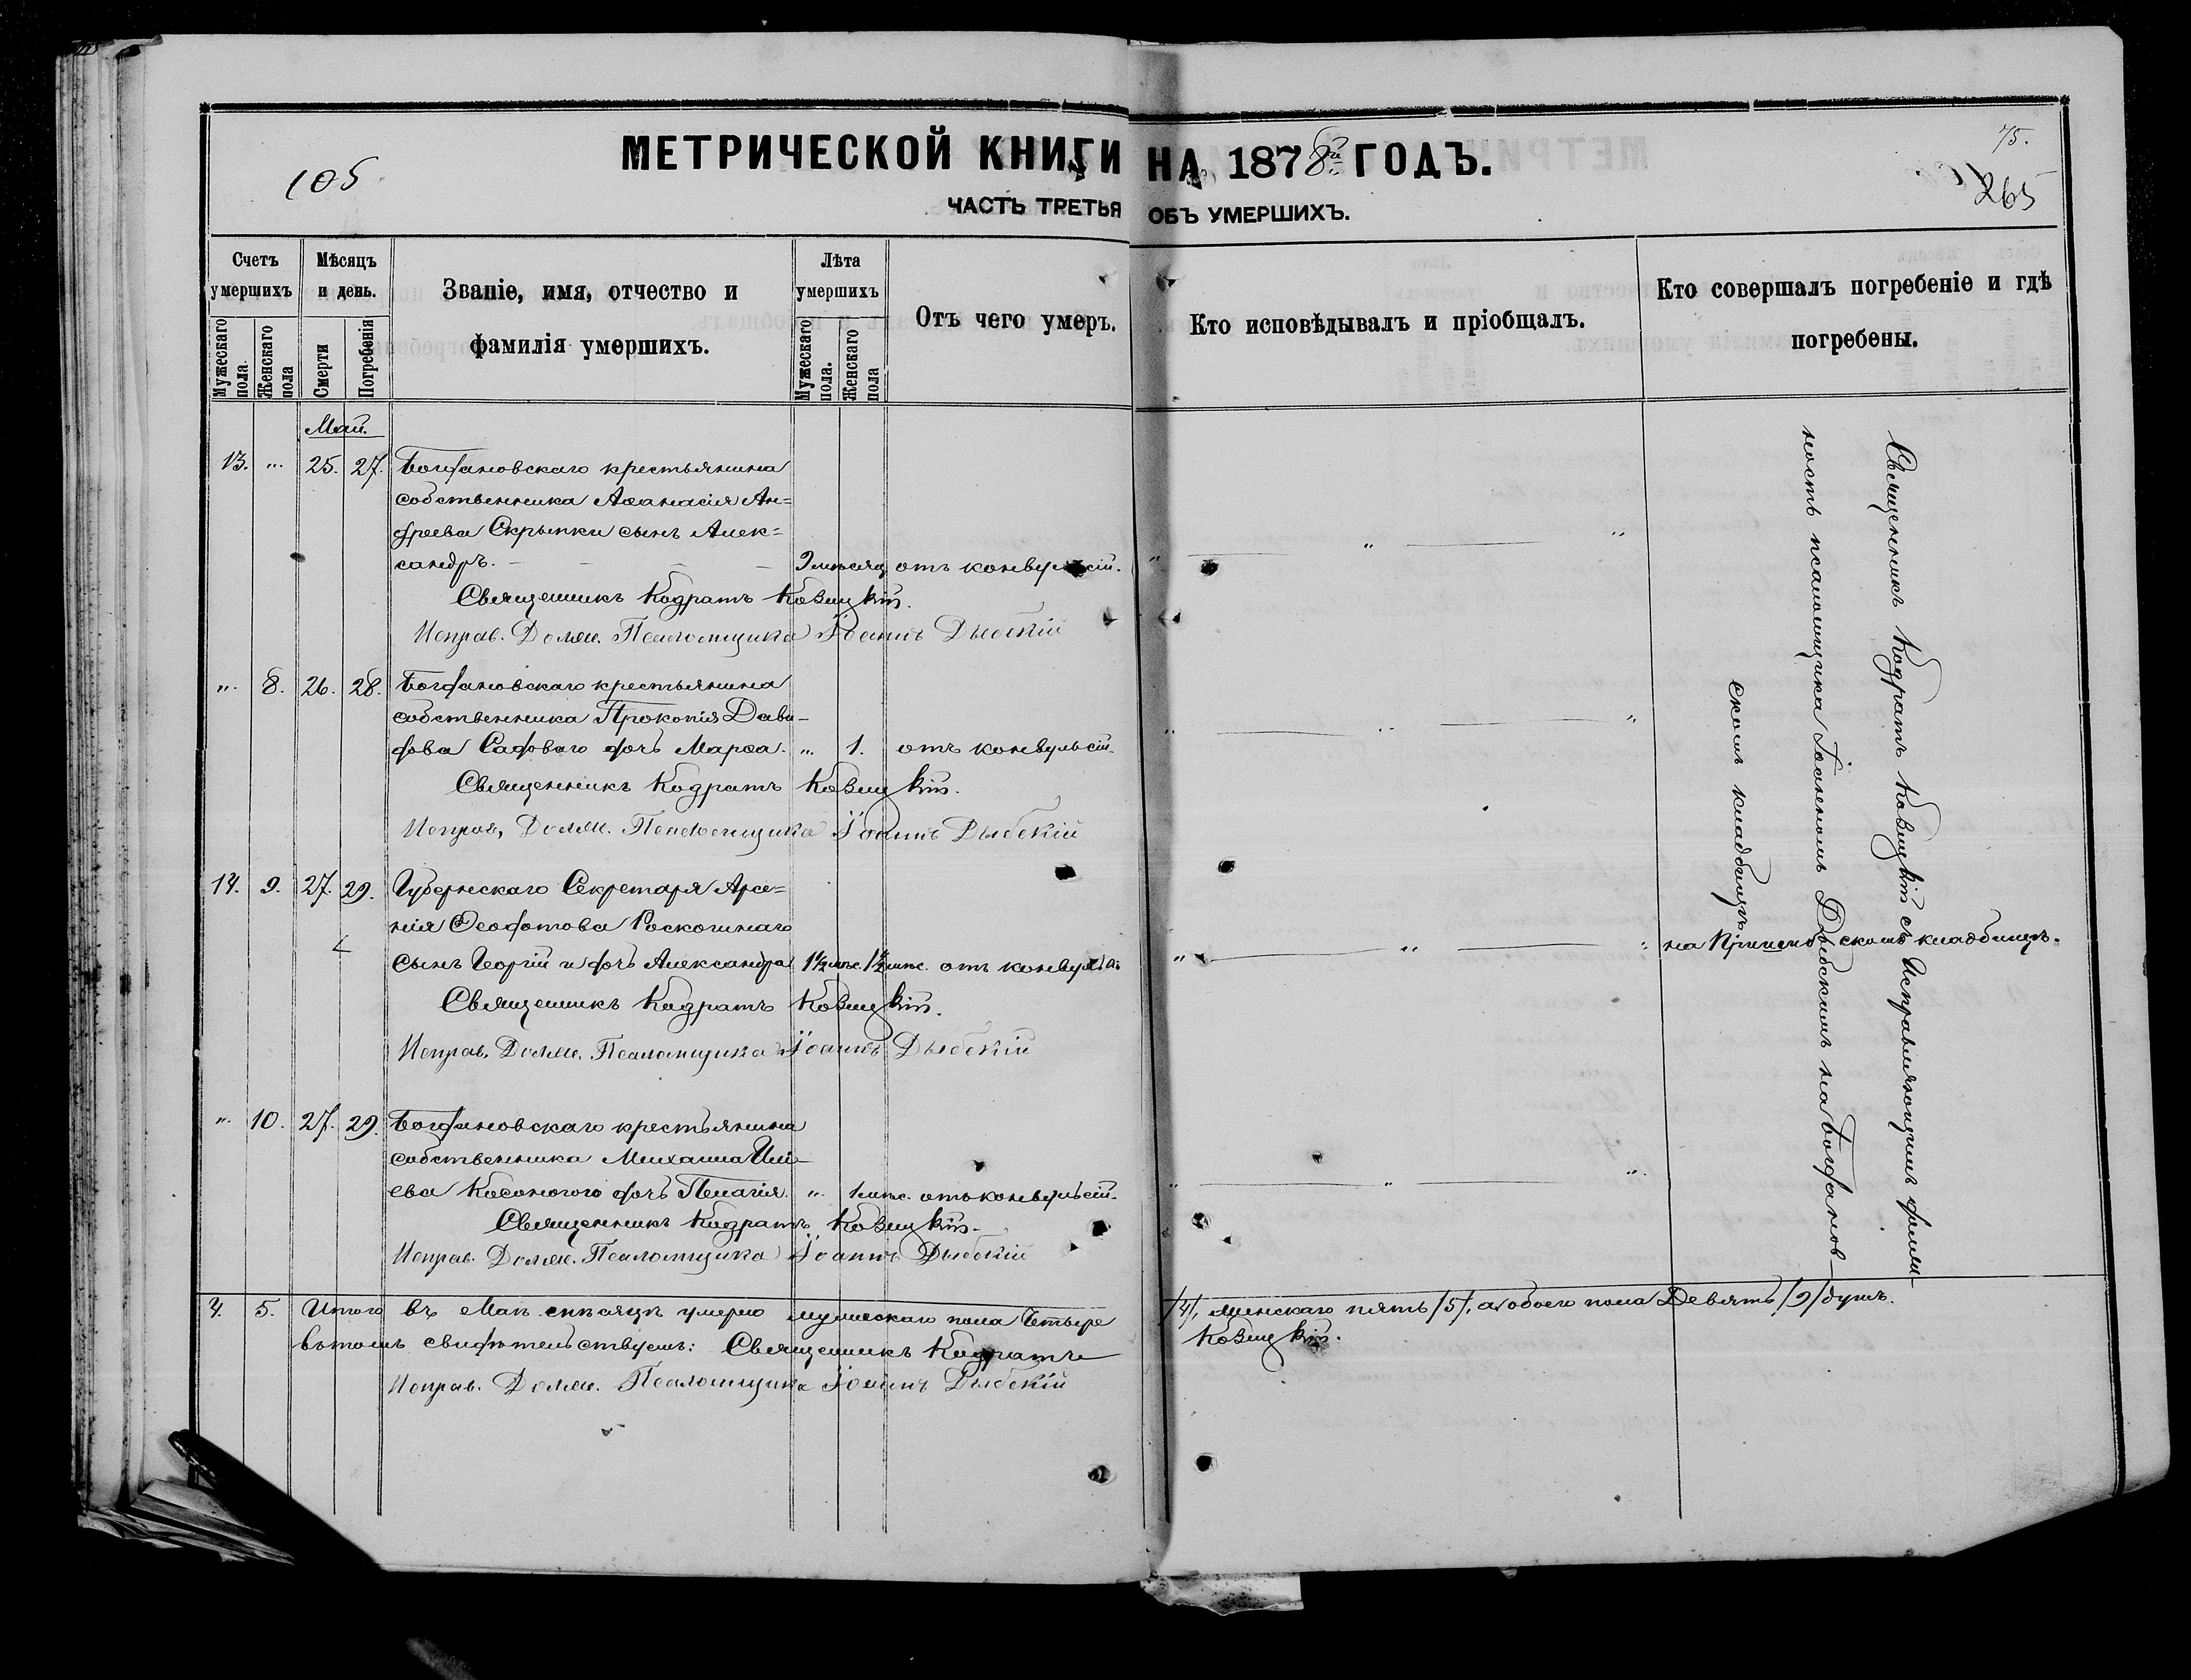 105
МЕТРИЧЕСКОЙ КНИГИ НА 1878й ГОДЪ.
75.
265
ЧАСТЬ ТРЕТЬЯ ОБЪ УМЕРШИХЪ.
Счетъ умершихъ
Мужескаго пола.
Женскаго пола
Мѣсяцъ и день.
Смерти
Погребенія
Званіе, имя, отчество и
фамилія умершихъ.
Лѣта умершихъ
Мужескаго пола.
Женскаго пола
Отъ чего умеръ.
Кто исповѣдывалъ и пріобщалъ.
Кто совершалъ погребеніе и гдѣ
погребены.
Май.
13. " 25. 27. Богдановскаго крестьянина
собственника Аѳанасія Ан=
дреева Скрыпки сынъ Алек=
сандръ. 9 мѣсяц отъ конвульсій.
Священникъ Кодратъ Ковицкій.
Исправ. Должн. Псаломщика Іоаннъ Дыбскій
" 8. 26. 28. Богдановскаго крестьянина
собственника Прокопія Дави-
дова Садоваго дочь Марѳа. " 1. отъ конвульсій.
Священникъ Кодратъ Ковицкій.
Исправ. Должн. Псаломщика Іоаннъ Дыбскій
14. 9. 27. 29. Губернскаго Секретаря Арсе=
нія Ѳеодотова Роскошнаго
сынъ Георгій и дочь Александра 1½ мѣс. 1½ мѣс. отъ конвульсій
на скомъ кладбищѣ.
Священникъ Кодратъ Ковицкій.
Исправ. Должн. Псаломщика Іоаннъ Дыбскій
" 10. 27. 29. Богдановскаго крестьянина
собственника Михаила
ева Косоногого дочь Пелагія. " 1 мѣс. отъ конвульсій.
Священникъ Кодратъ Ковицкій.
Исправ. Должн. Псаломщика Іоаннъ Дыбскій
Священникъ Кодратъ Ковицкій съ Исправляющимъ должн-
ность псаломщика Іоанномъ Дыбскимъ на Богданов-
скомъ кладбищѣ
4. 5. Итого въ Маѣ мѣсяцѣ умерло мужескаго пола Четыре /4/, женскаго пять /5/, а обоего пола Девять /9/ душъ.
въ томъ свидѣтельствуемъ: Священникъ Кодратъ Ковицкій.
Исправ. Должн. Псаломщика Іоаннъ Дыбскій